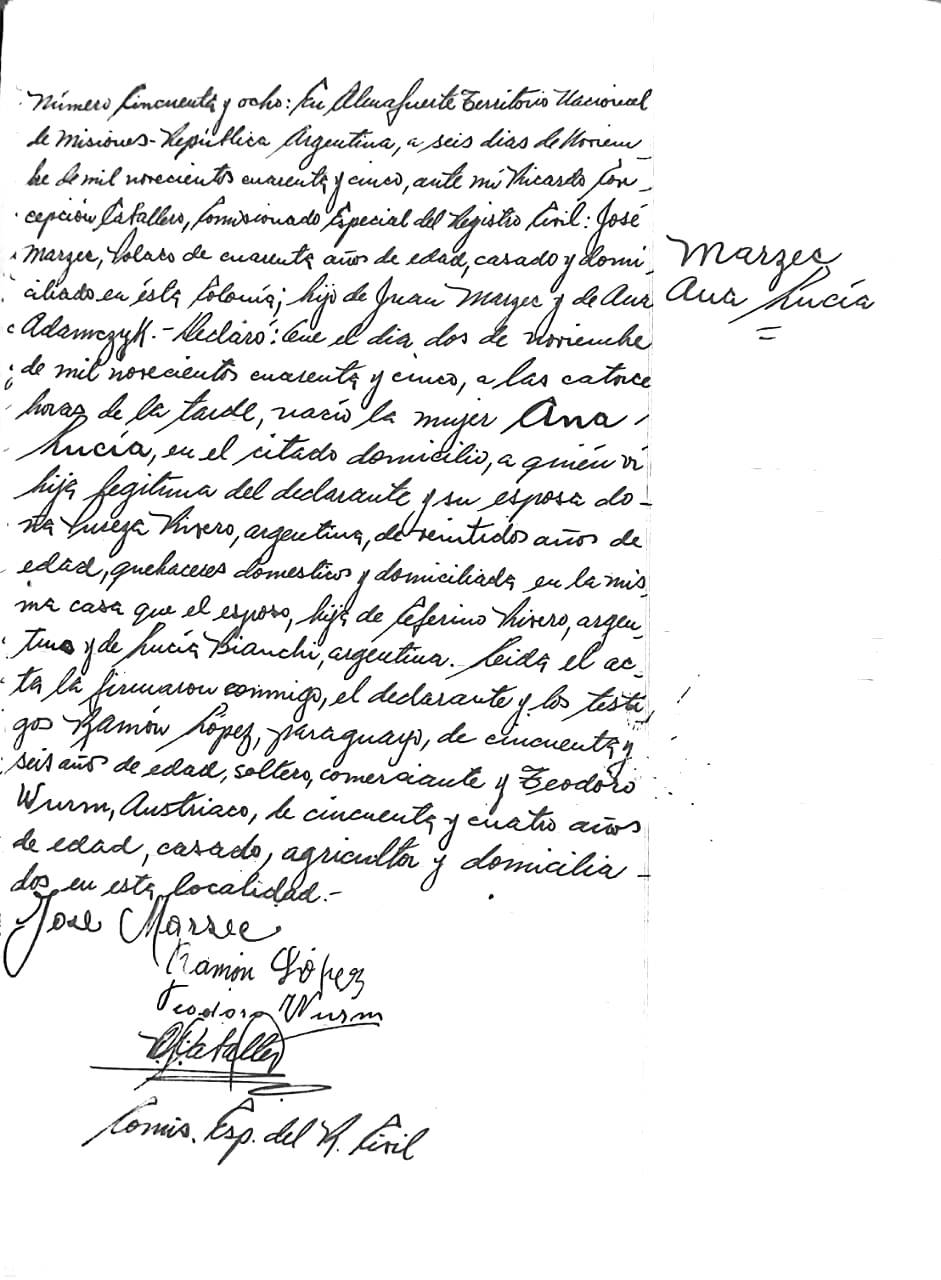 Número Cincuenta y ocho: En Alem Fuerte Territorio Nacional
de Misiones - República Argentina, a seis dias de Noviem-
bre de mil novecientos cuarenta y cinco, ante mí Ricardo Con-
cepción Caballero, Comisionado Especial del Registro Civil: José
Marzec, Polaco de cuarenta años de edad, casado y domi-
ciliado en ésta Colonia; hijo de Juan Marzec y de Ana
Adamczyk. - Declaró: Que el dia dos de noviembre
de mil novecientos cuarenta y cinco, a las catorce
horas de la tarde, nació la mujer Ana
Lucía, en el citado domicilio, a quién vi
hija legitima del declarante y su esposa do-
ña Rivero, argentina, de veintidos años de
edad, quehaceres domesticos y domiciliada en la mis-
ma casa que el esposo, hija de Ceferino Rivero, argen-
tino y de Lucía Bianchi, argentina. - Leida el ac-
ta la firmaron conmigo, el declarante y los testi-
gos Ramón López, paraguayo, de cincuenta y
seis años de edad, soltero, comerciante y Teodoro
Wurm, Austriaco, de cincuenta y cuatro años
de edad, casado, agricultor y domicilia-
dos en esta localidad. -
José Marzec
Ramón López
Teodoro Wurm
R. C. Caballero
Comis. Esp. del R. Civil
Marzec
Ana Lucía